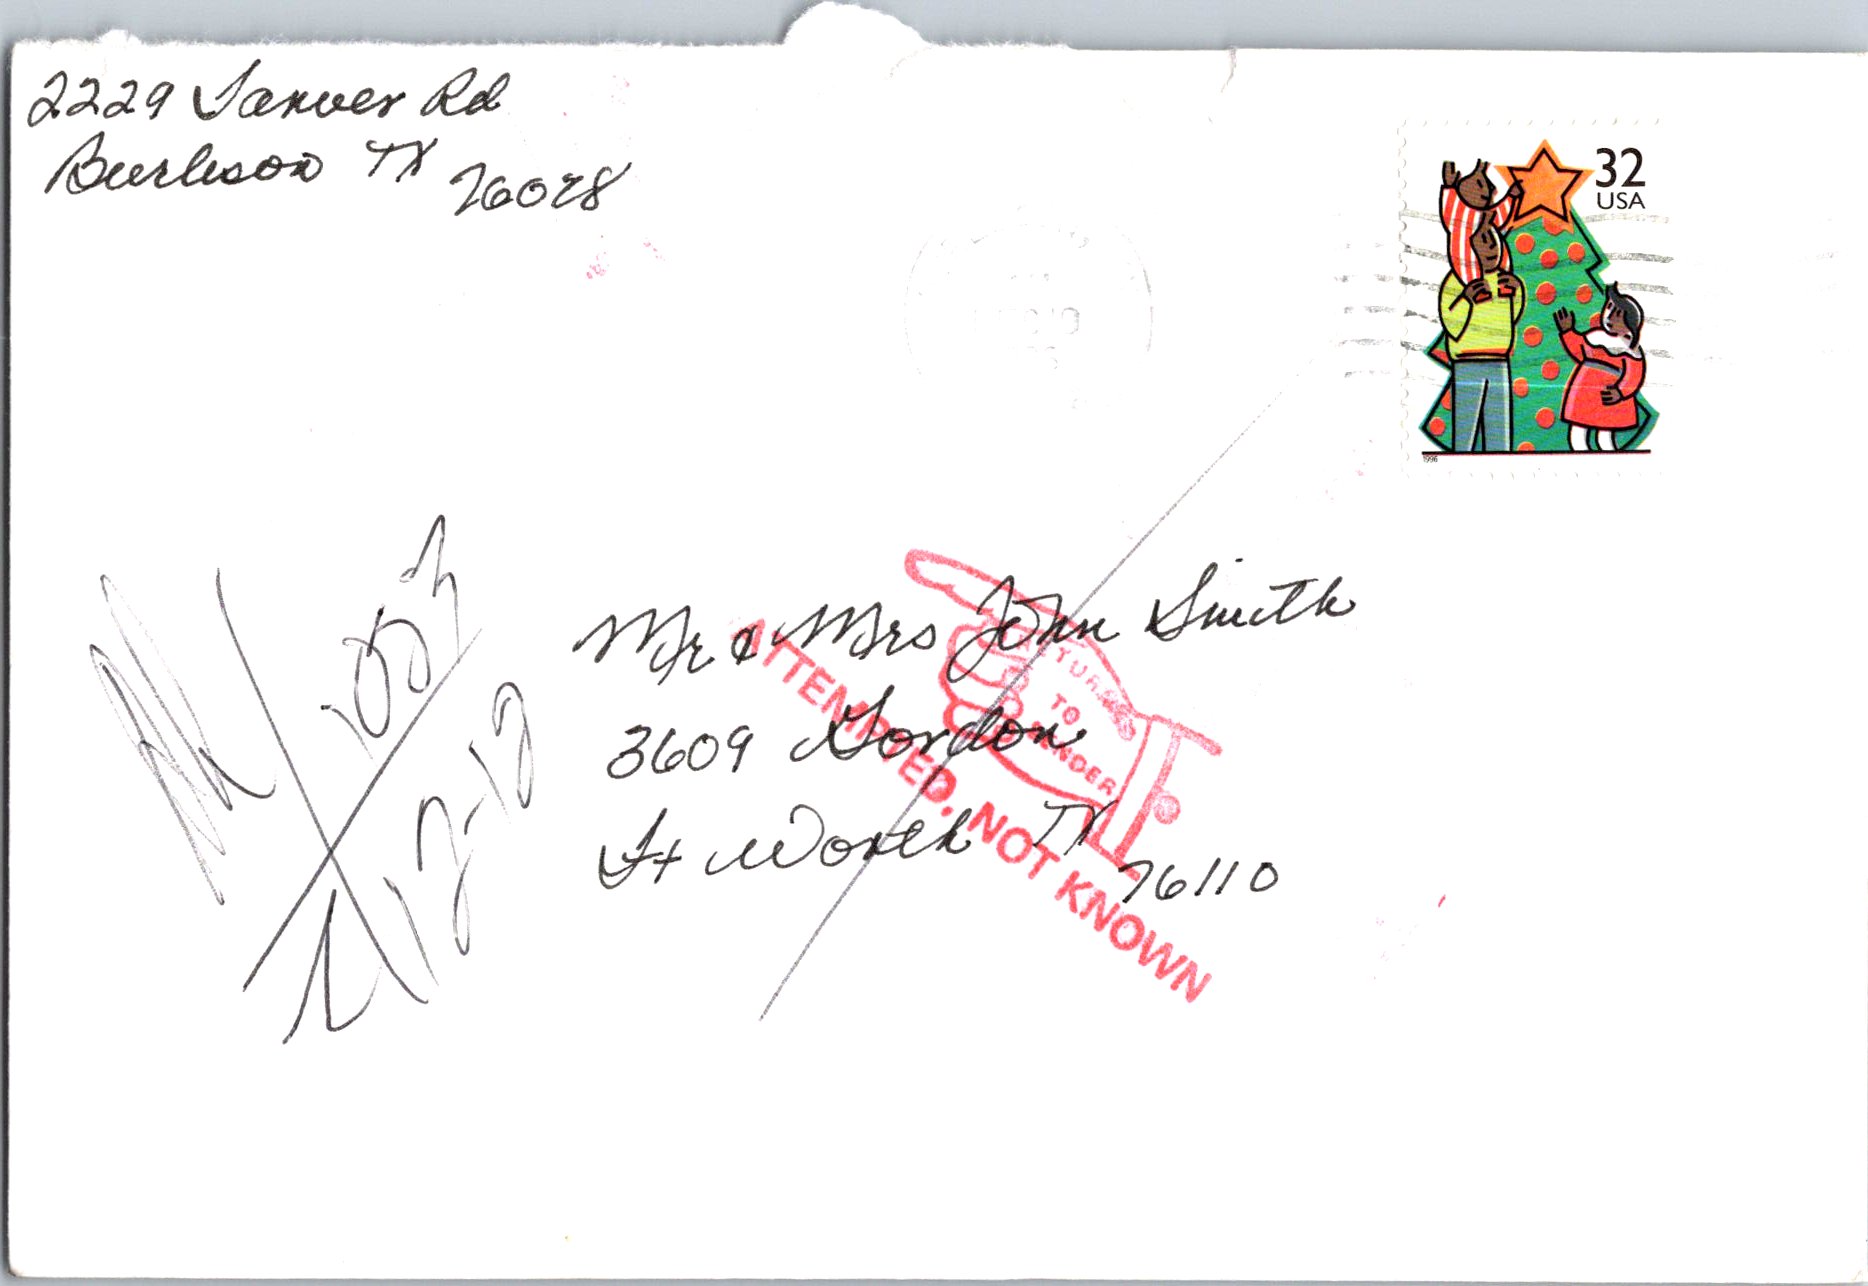 2229 Tarver Rd
Burleson TX
76028
32
USA
1996
1003
12-12
Mr & Mrs John Smith
3609 Gordon
Ft Worth TX
76110
RETURN
TO
SENDER
ATTEMPTED, NOT KNOWN